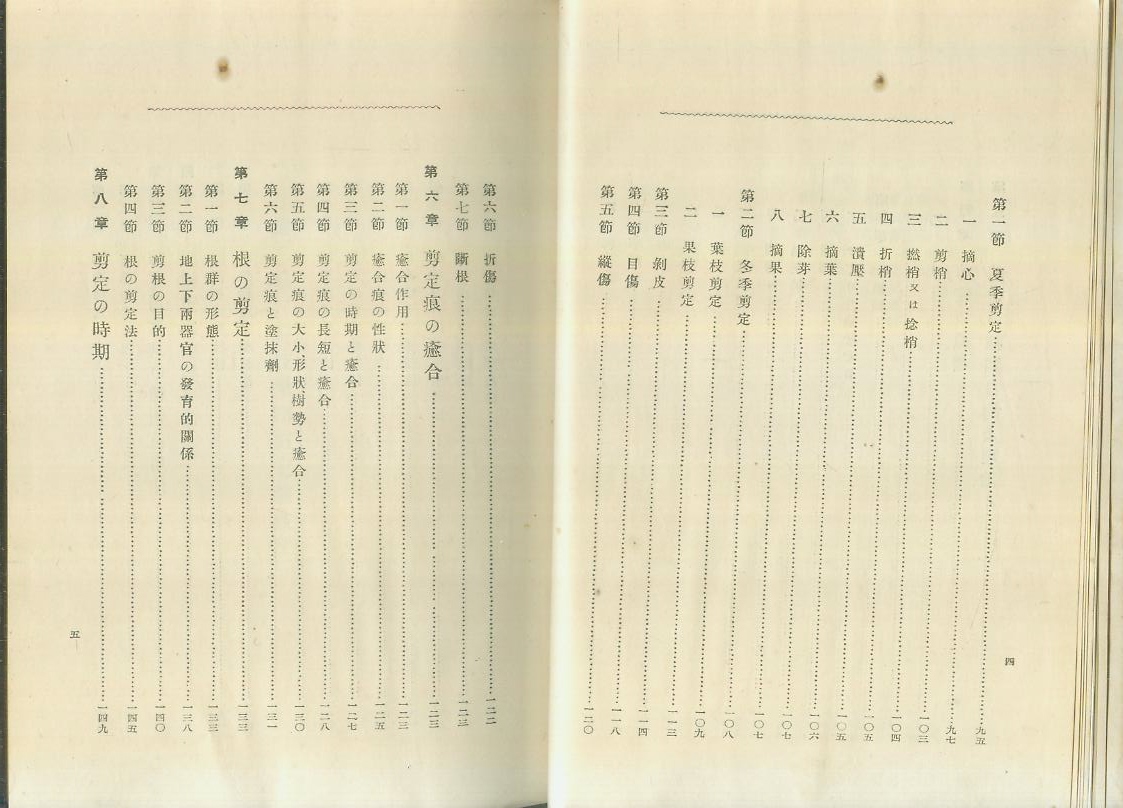 第一節 夏季剪定……九五
一 摘心……九七
二 剪梢……一〇三
三 撚梢又は捻梢……一〇四
四 折梢……一〇五
五 潰壓……一〇五
六 摘葉……一〇六
七 除芽……一〇七
八 摘果……一〇七
第二節 冬季剪定……一〇八
一 葉枝剪定……一〇九
二 果枝剪定……一一三
第三節 剝皮……一一四
第四節 目傷……一一八
第五節 縱傷……一二〇
四
第六節 折傷……一二二
第七節 斷根……一二三
第六章 剪定痕の癒合……一二三
第一節 癒合作用……一二三
第二節 癒合痕の性狀……一二五
第三節 剪定の時期と癒合……一二七
第四節 剪定痕の長短と癒合……一二八
第五節 剪定痕の大小、形狀、樹勢と癒合……一三〇
第六節 剪定痕と塗抹劑……一三一
第七章 根の剪定……一三三
第一節 根群の形態……一三三
第二節 地上下兩器官の發育的關係……一三八
第三節 剪根の目的……一四〇
第四節 根の剪定法……一四五
第八章 剪定の時期……一四九
五